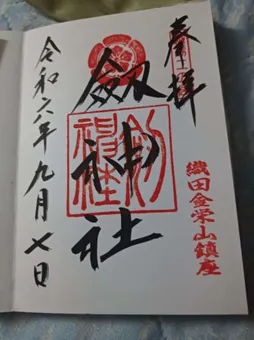 奉拝
織田金栄山鎮座
劔神社
劔神社
令和六年九月七日